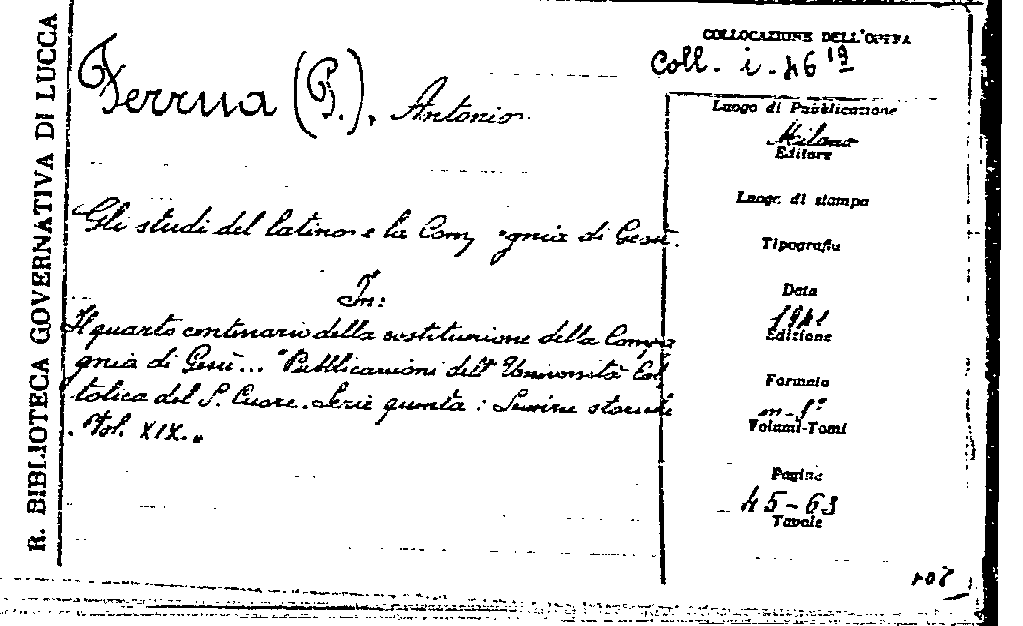 R. BIBLIOTECA GOVERNATIVA DI LUCCA
COLLOCAZIONE DELL'OPERA
Coll. i. 46 19
Ferrua (P.), Antonio
Luogo di Pubblicazione
Milano
Editore
Luogo di stampa
Gli studi del latino e la Compagnia di Gesù.
Tipografia
In:
Data
1941
Edizione
Il quarto centenario della costituzione della Compa
gnia di Gesù... "Pubblicazioni dell'Università Cat
tolica del S. Cuore. Serie quinta: Scienze storiche
Vol. XIX.„
Formato
m-8°
Volumi-Tomi
Pagine
45-63
Tavole